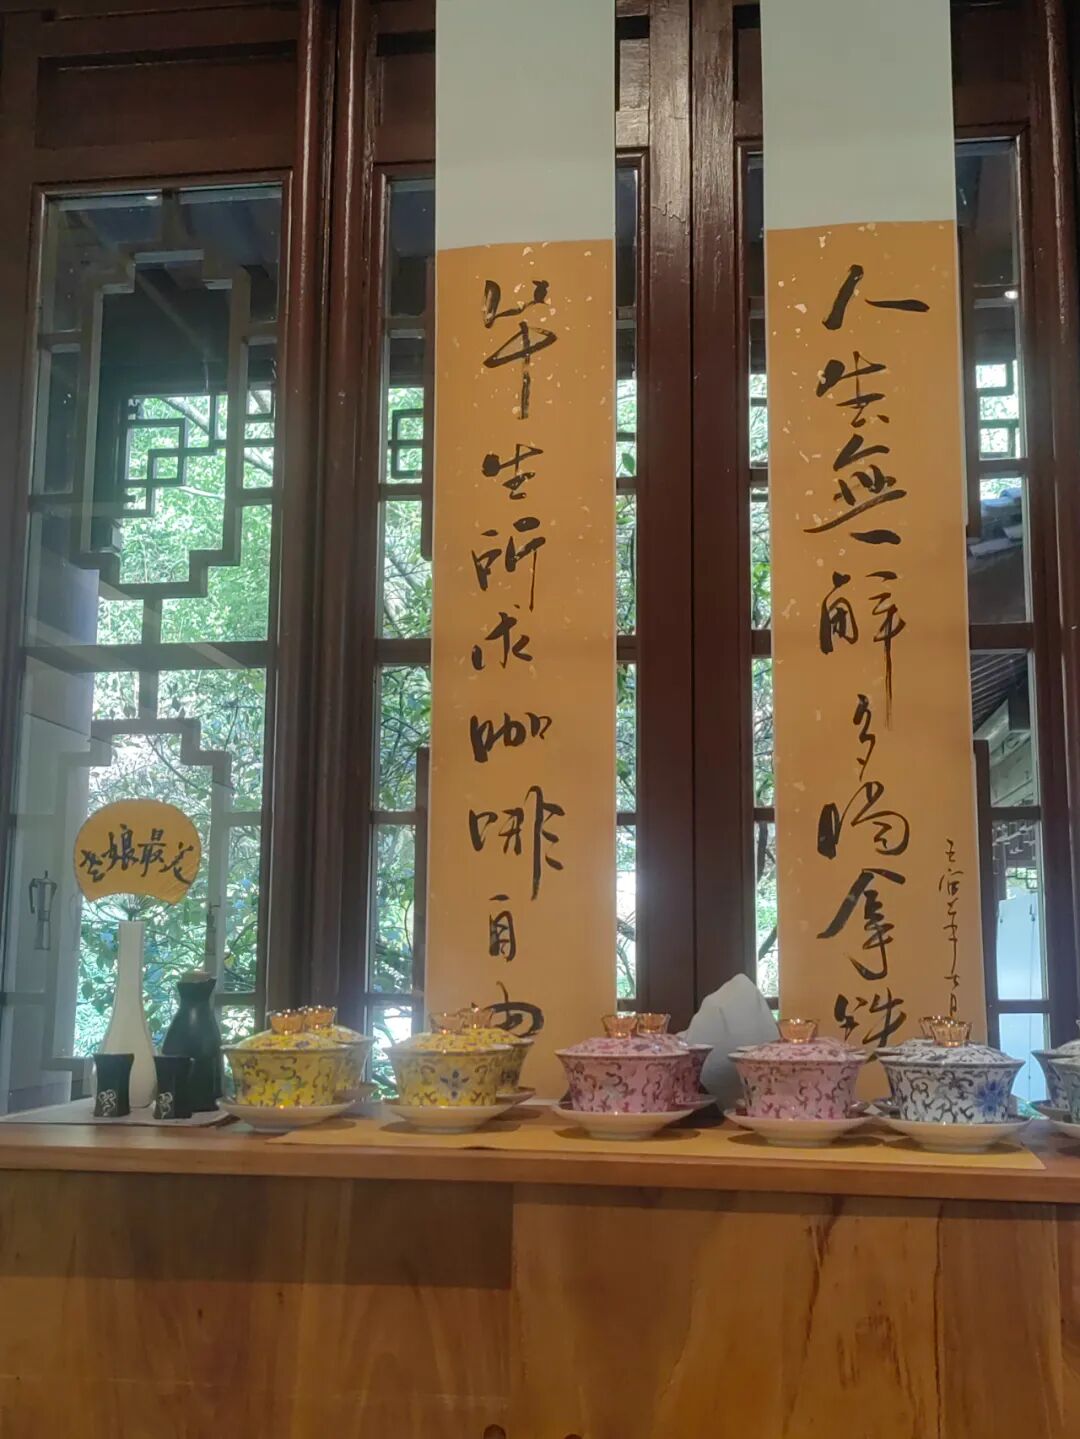 人生無解多喝拿铁
壬寅年七月
毕生所求咖啡自由
娘最